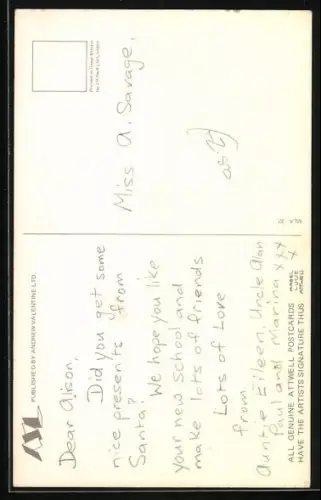 PUBLISHED BY ANDREW VALENTINE LTD.
Dear Alison,
Did you get some
nice presents from
Santa?
We hope you like
your new school and
make lots of friends
Lots of Love
from
Auntie Eileen, Uncle Alan
Paul and Marina xxx
x
ALL GENUINE ATTWELL POSTCARDS
HAVE THE ARTISTS SIGNATURE THUS
MABEL
LUCIE
ATTWELL
Miss A. Savage.